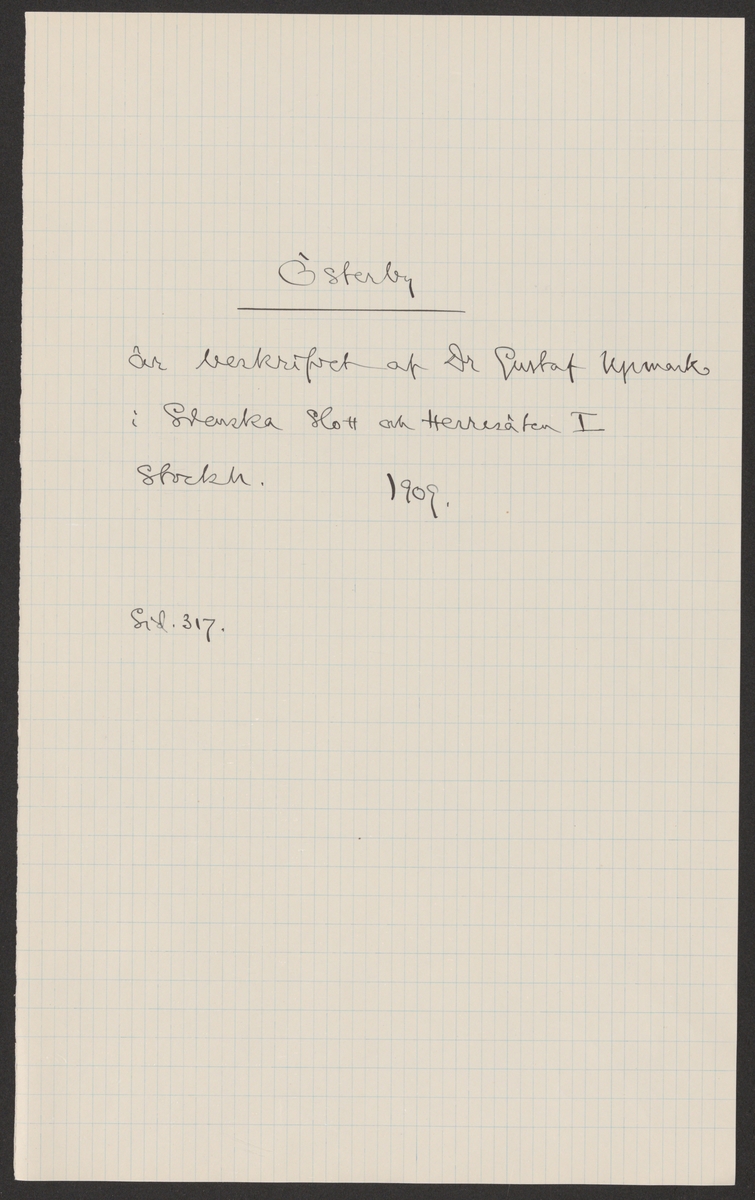 Österby
är beskrifvet af Dr Gustaf Upmark
i Svenska Slott och Herresäten I
Stockh. 1909.
Sid. 317.